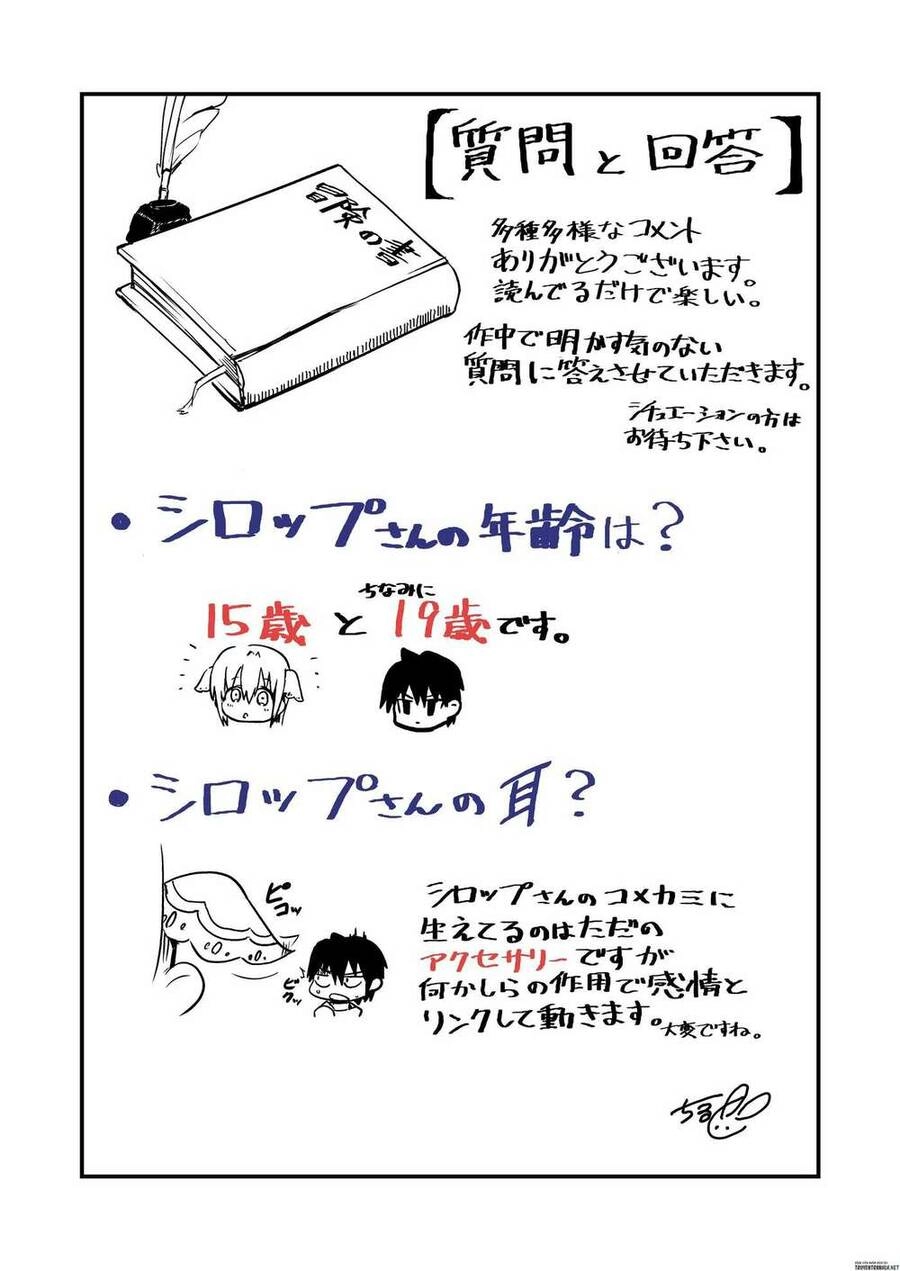 【質問と回答】
冒険の書
多種多様なコメント
ありがとうございます。
読んでるだけで楽しい。
作中で明かす気のない
質問に答えさせていただきます。
シチュエーションの方は
お待ち下さい。
・シロップさんの年齢は？
ちなみに
15歳と19歳です。
・シロップさんの耳？
ピコッ
ビクッ
シロップさんのコメカミに
生えてるのはただの
アクセサリーですが
何かしらの作用で感情と
リンクして動きます。大変ですね。
TRUYENTRANH24.NET